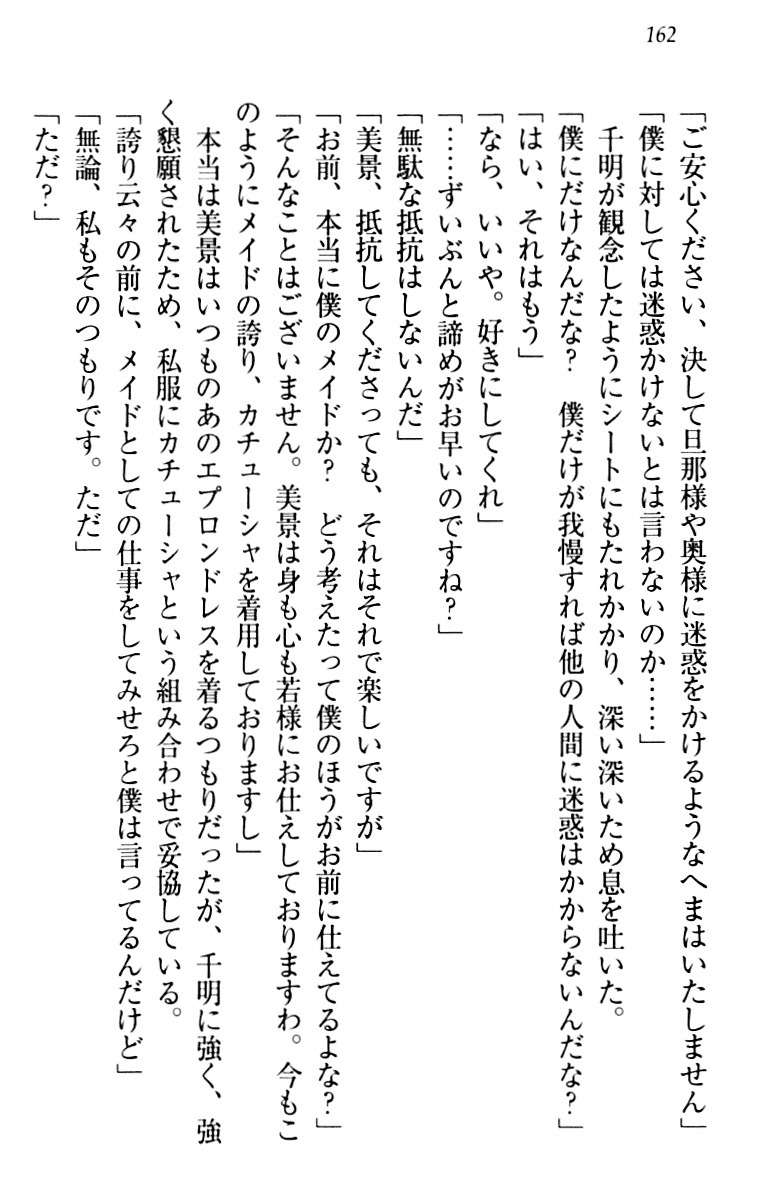 162
「ご安心ください、決して旦那様や奥様に迷惑をかけるようなへまはいたしません」
「僕に対しては迷惑かけないとは言わないのか……」
　千明が観念したようにシートにもたれかかり、深い深いため息を吐いた。
「僕にだけなんだな？　僕だけが我慢すれば他の人間に迷惑はかからないんだな？」
「はい、それはもう」
「なら、いいや。好きにしてくれ」
「……ずいぶんと諦めがお早いのですね？」
「無駄な抵抗はしないんだ」
「美景、抵抗してくださっても、それはそれで楽しいですが」
「お前、本当に僕のメイドか？　どう考えたって僕のほうがお前に仕えてるよな？」
「そんなことはございません。美景は身も心も若様にお仕えしておりますわ。今もこ
のようにメイドの誇り、カチューシャを着用しておりますし」
　本当は美景はいつものあのエプロンドレスを着るつもりだったが、千明に強く、強
く懇願されたため、私服にカチューシャという組み合わせで妥協している。
「誇り云々の前に、メイドとしての仕事をしてみせろと僕は言ってるんだけど」
「無論、私もそのつもりです。ただ」
「ただ？」